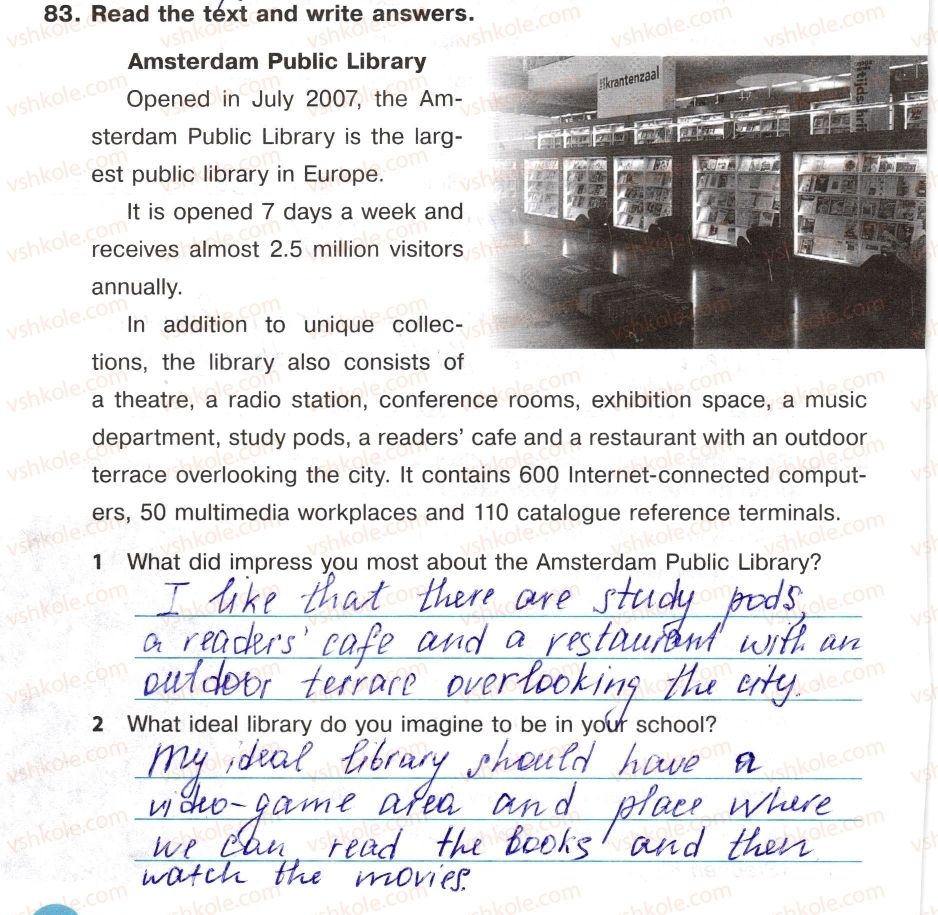 83. Read the text and write answers.
Amsterdam Public Library
Opened in July 2007, the Am-
sterdam Public Library is the larg-
est public library in Europe.
It is opened 7 days a week and
receives almost 2.5 million visitors
annually.
In addition to unique collec-
tions, the library also consists of
a theatre, a radio station, conference rooms, exhibition space, a music
department, study pods, a readers' cafe and a restaurant with an outdoor
terrace overlooking the city. It contains 600 Internet-connected comput-
ers, 50 multimedia workplaces and 110 catalogue reference terminals.
krantenzaal
1 What did impress you most about the Amsterdam Public Library?
I like that there are study pods,
a readers' cafe and a restaurant with an
outdoor terrace overlooking the city.
2 What ideal library do you imagine to be in your school?
My ideal library should have a
video-game area and place where
we can read the books and then
watch the movies.
vshkole.com